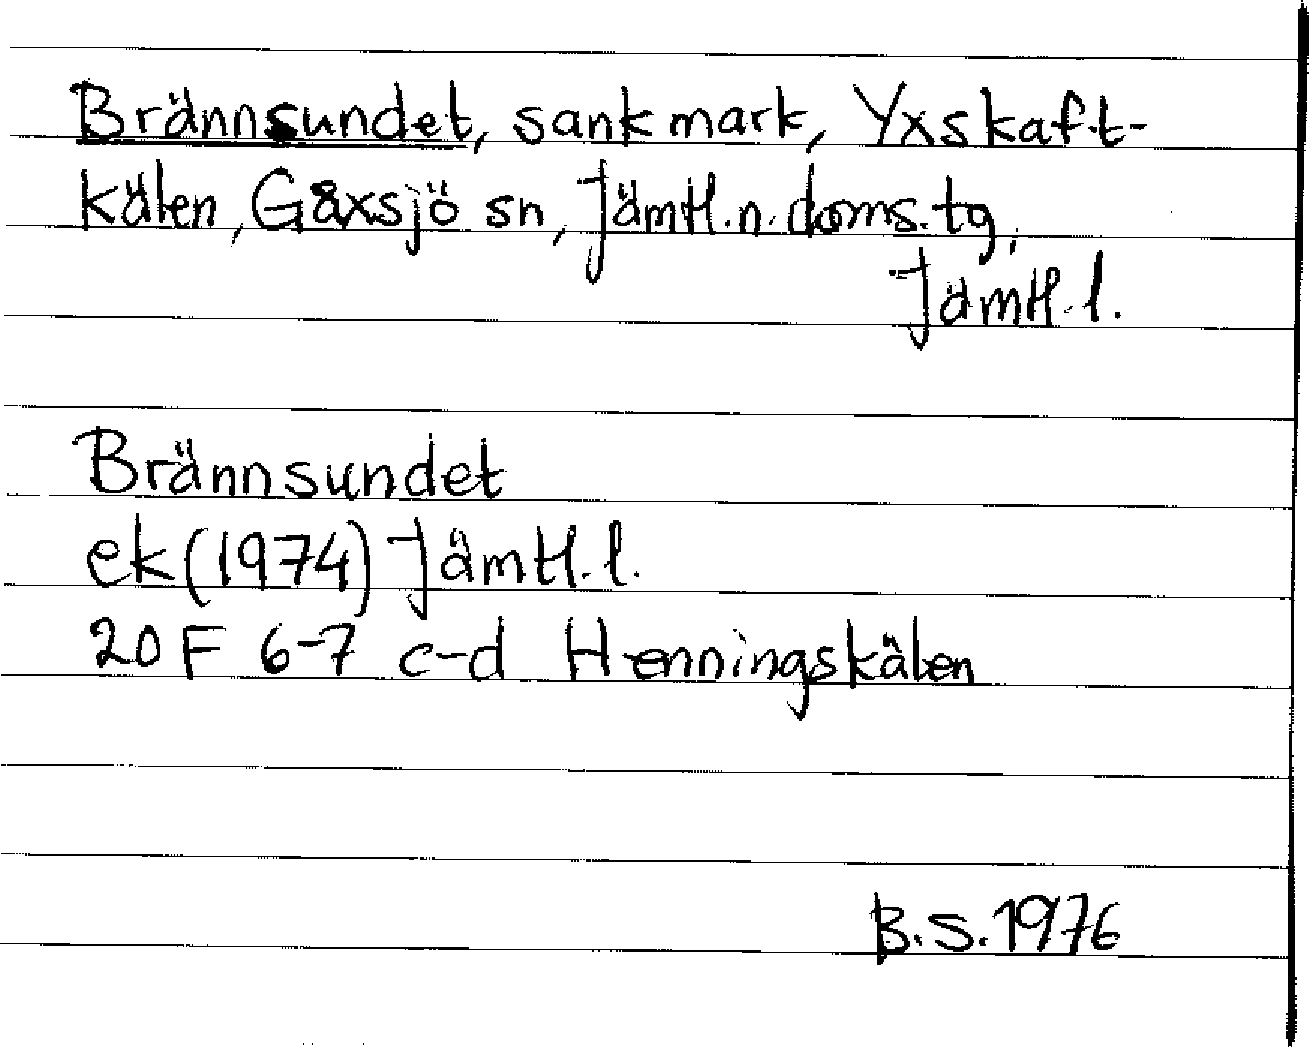 Brännsundet, sankmark, Yxskaft-
kälen, Gåxsjö sn, Jämtl.n.doms.tg,
Jämtl.l.
Brännsundet
ek (1974) Jämtl.l.
20 F 6-7 c-d Henningskälen
B.S. 1976